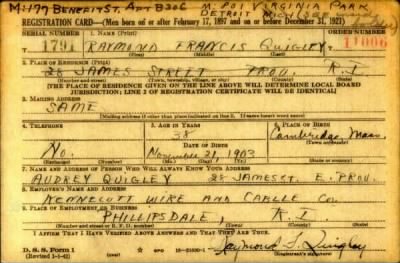 M: 177 BENEFIT ST. APT B306 M: 901 VIRGINIA PARK
DETROIT MICH (
REGISTRATION CARD—(Men born on or after February 17, 1897 and on or before December 31, 1921)
SERIAL NUMBER 1. NAME (Print) ORDER NUMBER
1791 RAYMOND FRANCIS QUIGLEY 11006
(First) (Middle) (Last)
2. PLACE OF RESIDENCE (Print)
28 JAMES STREET PROV. R. I.
(Number and street) (Town, township, village, or city) (County) (State)
[THE PLACE OF RESIDENCE GIVEN ON THE LINE ABOVE WILL DETERMINE LOCAL BOARD
JURISDICTION; LINE 2 OF REGISTRATION CERTIFICATE WILL BE IDENTICAL]
3. MAILING ADDRESS
SAME
[Mailing address if other than place indicated on line 2. If same insert word same]
4. TELEPHONE 5. AGE IN YEARS 6. PLACE OF BIRTH
38 Cambridge
DATE OF BIRTH (Town or county)
No. November 21, 1903 Mass.
(Exchange) (Number) (Mo.) (Day) (Yr.) (State or country)
7. NAME AND ADDRESS OF PERSON WHO WILL ALWAYS KNOW YOUR ADDRESS
AUDREY QUIGLEY 28 JAMES ST. E. PROV.
8. EMPLOYER'S NAME AND ADDRESS
KENNECOTT WIRE AND CABLE CO
9. PLACE OF EMPLOYMENT OR BUSINESS
PHILLIPSDALE, R. I.
(Number and street or R. F. D. number) (Town) (County) (State)
I AFFIRM THAT I HAVE VERIFIED ABOVE ANSWERS AND THAT THEY ARE TRUE.
D. S. S. Form 1
(Revised 1-1-42) Raymond F. Quigley
(Registrant's signature)